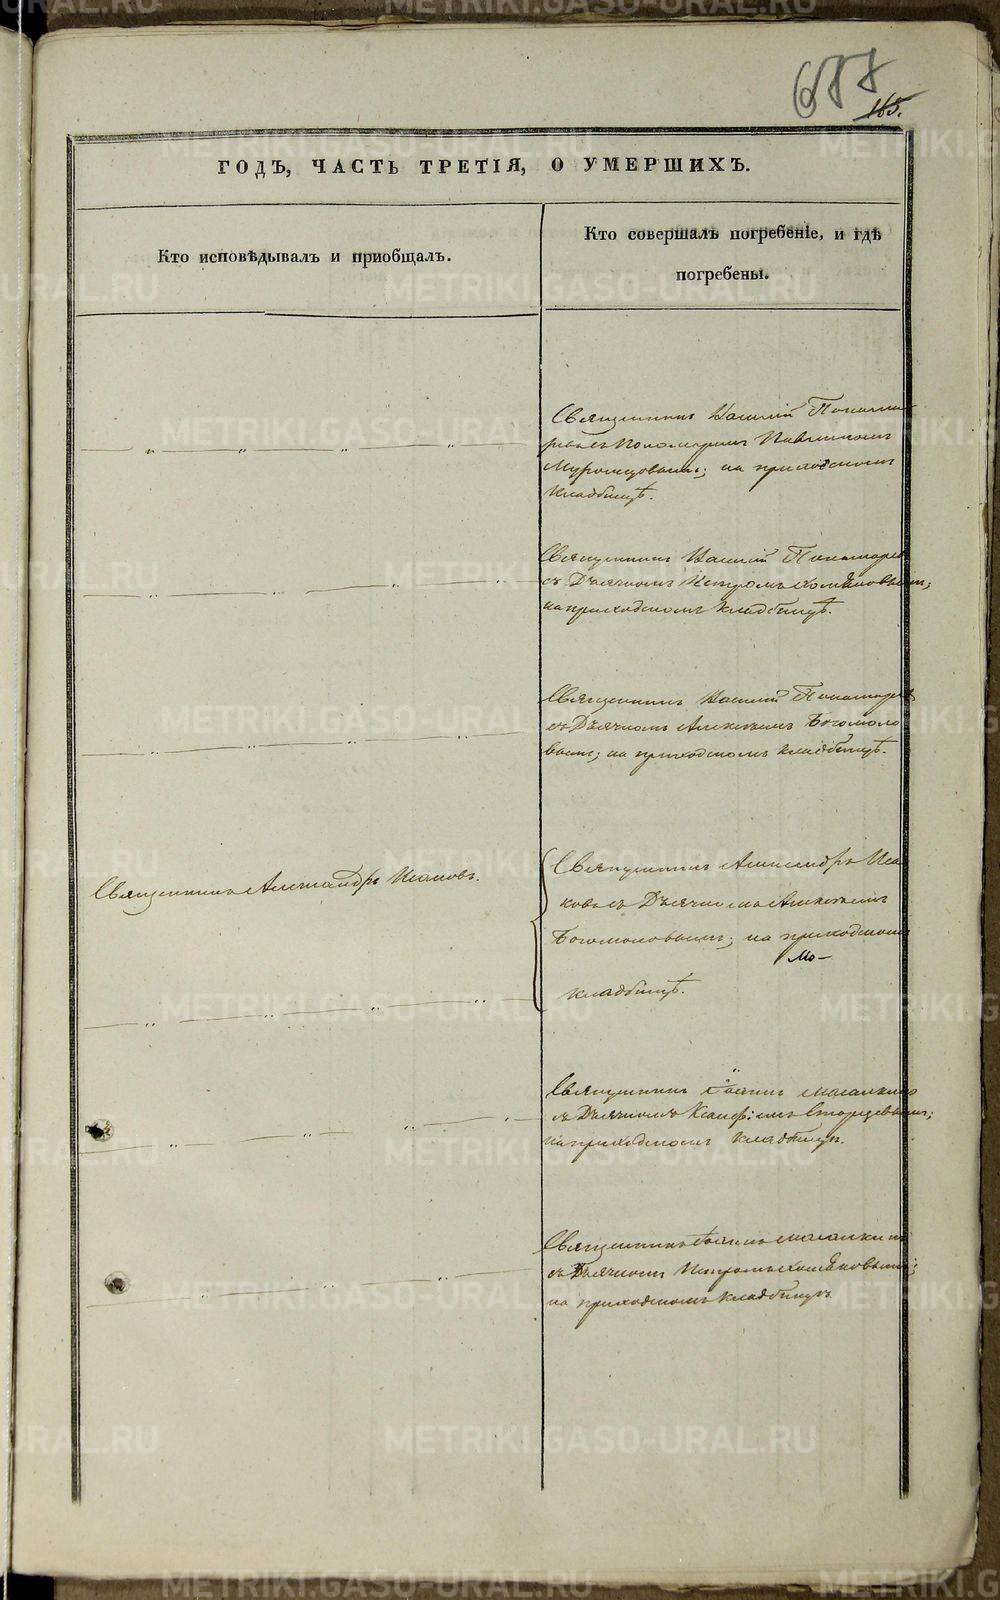 688
165.
ГОДЪ, ЧАСТЬ ТРЕТІЯ, О УМЕРШИХЪ.
Кто исповѣдывалъ и приобщалъ.
Кто совершалъ погребеніе, и гдѣ
погребены.
Священникъ Василій Понама
ревъ съ Пономаремъ
на приходскомъ
кладбищѣ.
Священникъ Василій Понамарев
съ Дьячкомъ Петромъ Хомяковымъ;
на приходскомъ кладбищѣ.
Священникъ Василій Понамарев
съ Дьячкомъ Алексѣемъ Богомоло
вымъ; на приходскомъ кладбищѣ.
Священникъ Александръ Исаковъ.
Священникъ Александръ Иса
ковъ съ Дьячкомъ Алексѣемъ
Богомоловымъ; на приходскомъ
кладбищѣ.
Священникъ Іоаннъ
съ Дьячкомъ
на приходскомъ кладбищѣ.
Священникъ Іоаннъ
съ Дьячкомъ Петромъ Хомяковымъ;
на приходскомъ кладбищѣ.
METRIKI.GASO-URAL.RU